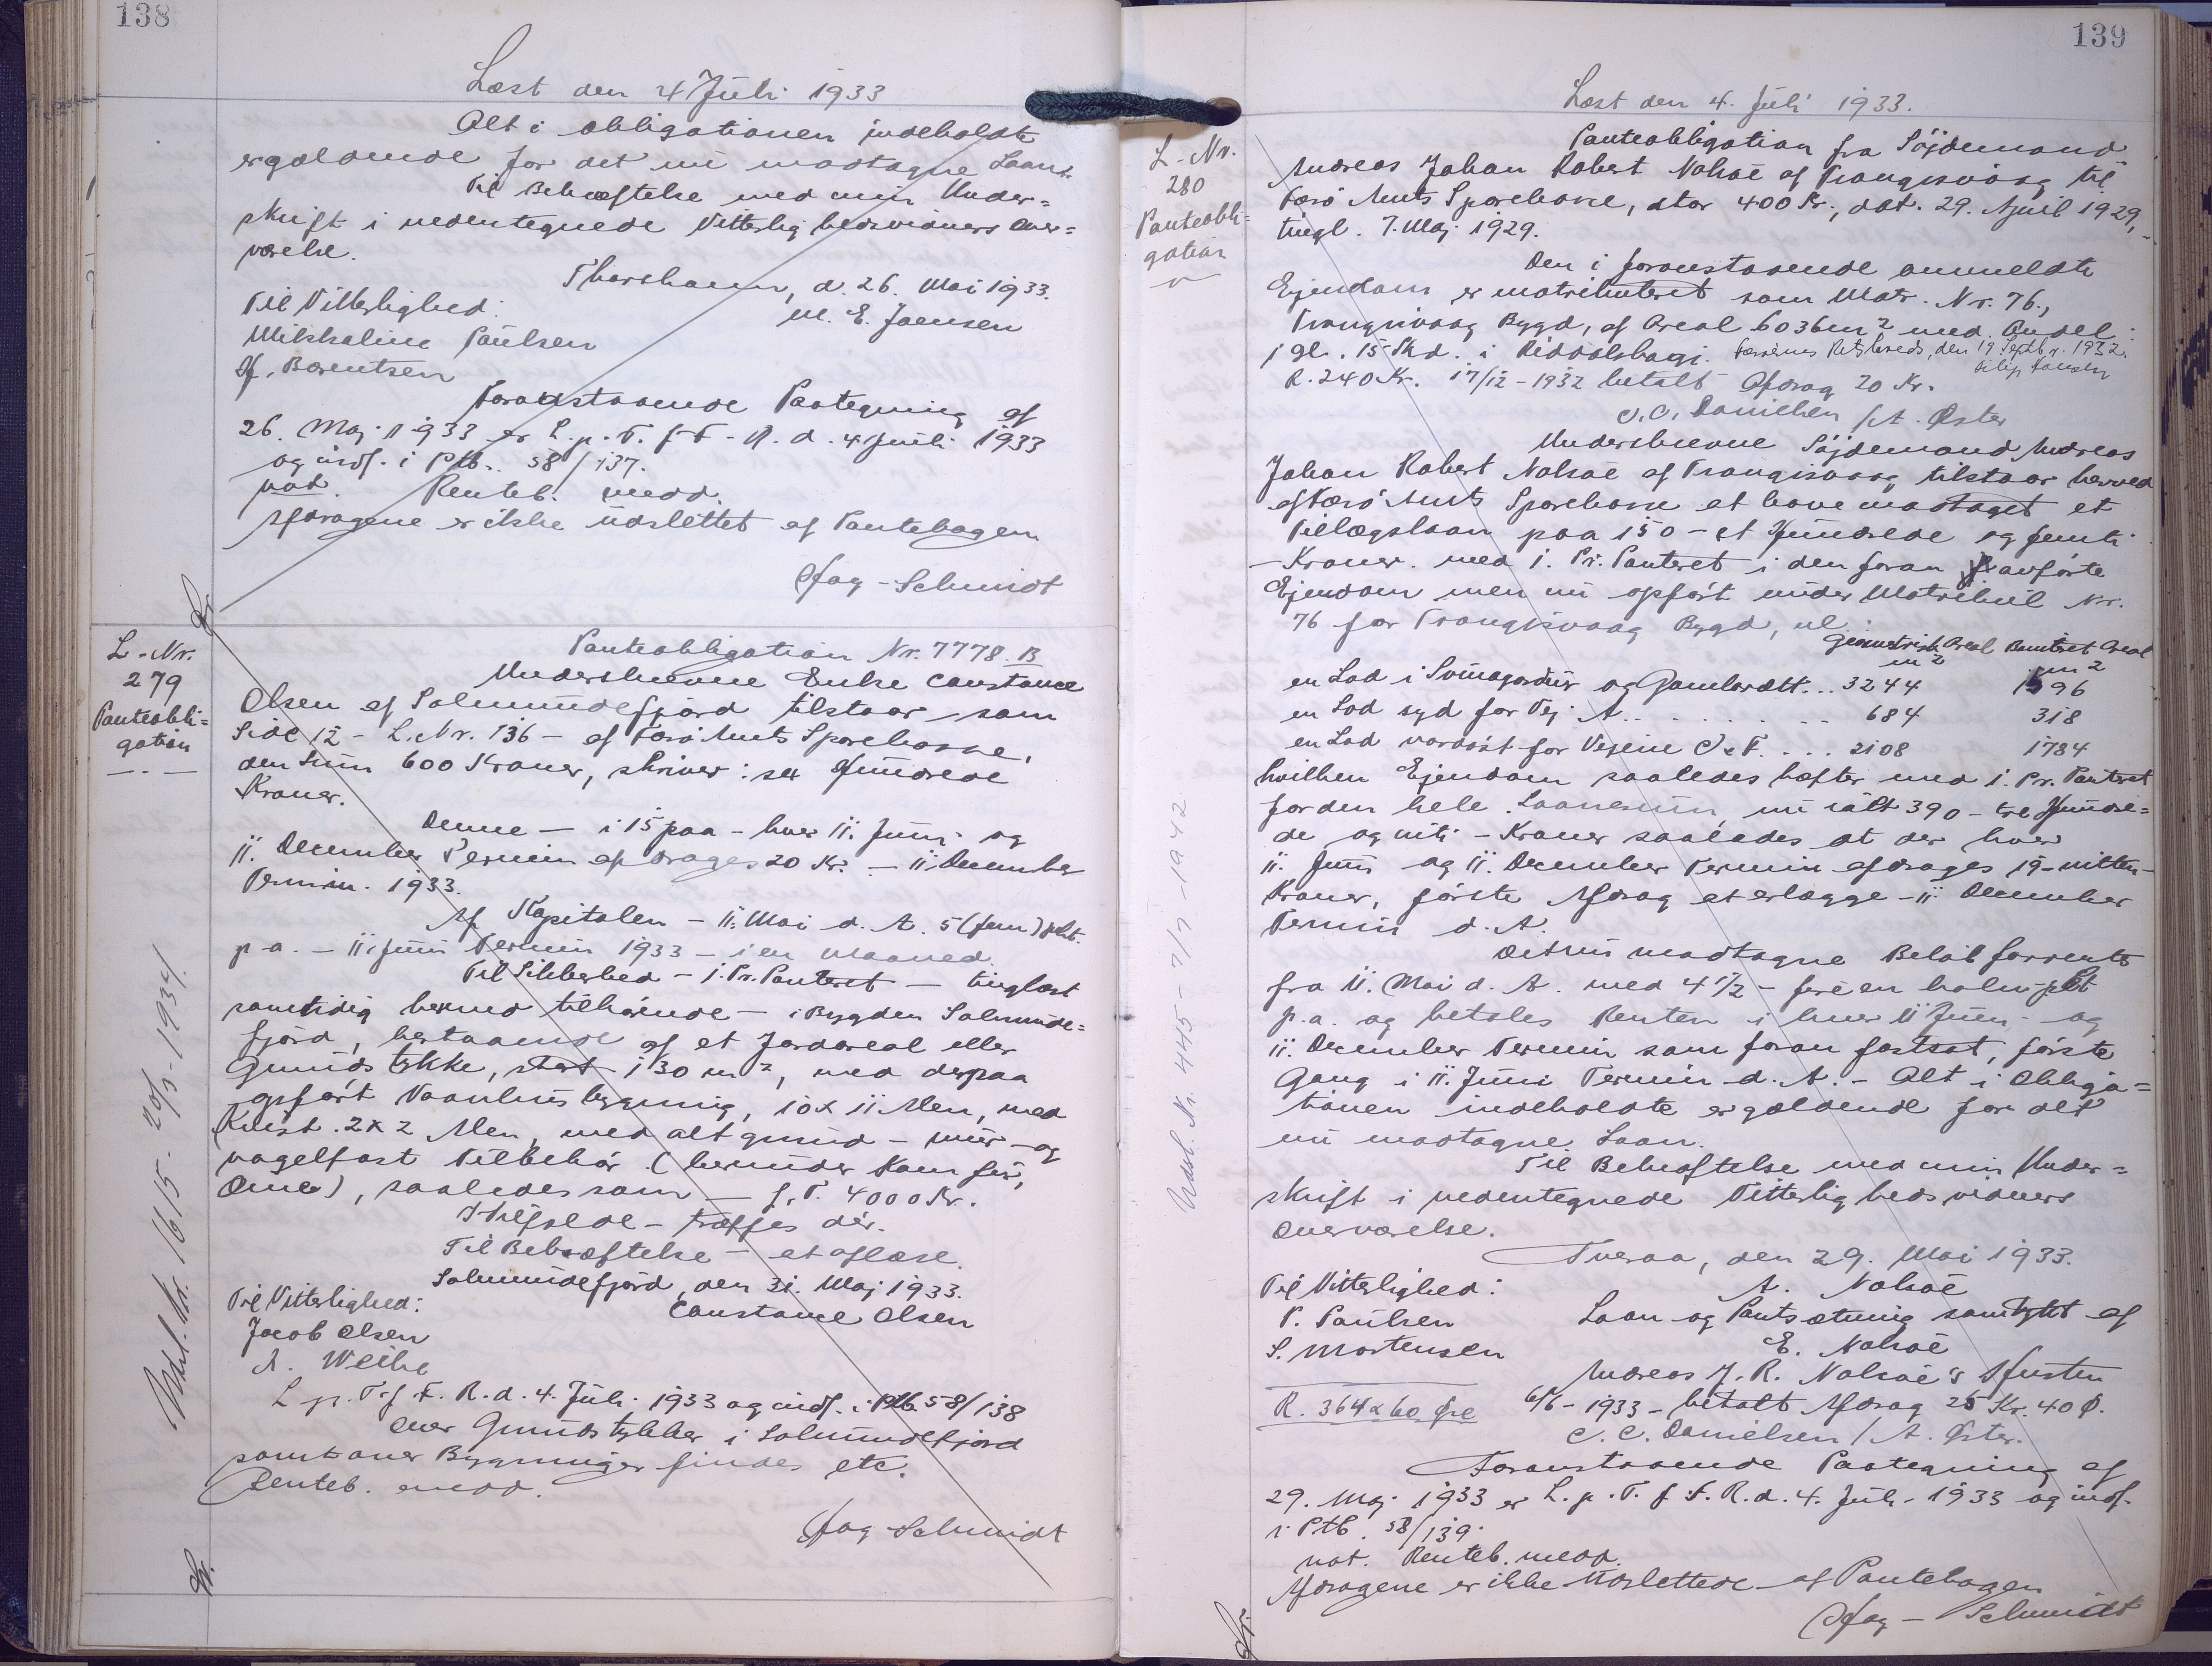 138
Læst den 4 Juli 1933
Alt i obligationen indeholdte
er gældende for det nu modtagne Laan.
Til Bekræftelse med min Under=
skrift i nedentegnede Vitterlighedsvidners Over=
værelse.
Thorshavn, d. 26. Mai 1933.
Til Vitterlighed:
M. E. Joensen
Mikkaline Paulsen
Hf. Berentsen
Foranstaaende Paategning af
26. Maj 1933 er L. p. T. f. F. R. d. 4 Juli 1933
og indf. i Ptb. 58/137.
not. Renteb. medd.
Afdragene er ikke udslettet af Pantebogen
Hag-Schmidt
L-Nr.
279
Panteobli=
gation
Panteobligation Nr. 7778. B
Underskrevne Enke Constance
Olsen af Solmundefjord tilstaar som
Side 12 - L. Nr. 136 - af Færø Amts Sparekasse,
den Sum 600 Kroner, skriver: sex Hundrede
Kroner.
Denne - i 15 paa - hver 11. Juni og
11. December Termin afdrages 20 Kr. - 11. December
Termin. 1933.
Af Kapitalen - 11. Mai d. A. 5 (fem) pCt.
p.a. - 11. Juni Termin 1933 - i en Maaned.
Til Sikkerhed - 1. Pr. Panteret - tinglæst
samtidig hermed tilhørende - i Bygden Solmunde=
fjord, bestaaende af et Jordareal eller
Grundstykke, stort 130 m², med derpaa
opført Vaanhusbygning, 10 x 11 Alen, med
Kvist. 2 x 2 Alen, med alt grund - mur - og
nagelfast Tilbehør (herunder Komfur,
Ovne), saaledes som - f. T. 4000 Kr.
I Tilfælde - træffes dér.
Til Bekræftelse - et aflæse.
Solmundefjord, den 31. Maj 1933.
Til Vitterlighed:
Constance Olsen
Jacob Olsen
A. Weihe
L. p. T. f. F. R. d. 4. Juli 1933 og indf. i Ptb. 58/138
Over Grundstykker i Solmundefjord
samt over Bygninger findes etc.
Renteb. medd.
Hag-Schmidt
Udsl. Nr. 1615 - 20/3-1934.
139
Læst den 4. Juli 1933.
L-Nr.
280
Panteobli=
gation
Panteobligation fra Söjdemand
Andreas Johan Robert Nolsøe af Trangisvaag til
Færø Amts Sparekasse, stor 400 Kr., dat. 29. April 1929,
tingl. 7. Maj 1929.
Den i foranstaaende ommeldte
Ejendom er matrikuleret som Matr. Nr. 76.,
Trangisvaag Bygd, af Areal 6036 m² med Andel
i gl. 15 Skd. i
Færøernes Retskreds, den 19. Septbr. 1932.
R. 240 Kr. 17/12-1932 betalt Afdrag 20 Kr.
C. C. Danielsen / A. Øster
Underskrevne Söjdemand Andreas
Johan Robert Nolsøe af Trangisvaag tilstaar herved
af Færø Amts Sparekasse at have modtaget et
Tillægslaan paa 150 - et Hundrede og femti
- Kroner. med 1. Pr. Panteret i den foran anførte
Ejendom men nu opført under Matrikul Nr.
76 for Trangisvaag Bygd,
Geometrisk Areal Boniteret Areal
m² m²
en Lod i Svinagardur og Gamlarætt... 3244 1596
en Lod syd for Vej A. . . . . . . . 684 318
en Lod nordøst for Vejene C & F. . . . 2108 1784
hvilken Ejendom saaledes hæfter med 1. Pr. Panteret
for den hele Laanesum, nu ialt 390 - tre Hundre=
de og niti - Kroner saaledes at der hver
11. Juni og 11. December Termin afdrages 19 - nitten -
Kroner, første Afdrag at erlægge - 11. December
Termin d. A.
Det nu modtagne Beløb forrentes
fra 11. Mai d. A. med 4 1/2 - fire en halv - pCt
p.a. og betales Renten i hver 11 Juni og
11. December Termin som foran fastsat, første
Gang i 11. Juni Termin d. A. - Alt i Obliga=
tionen indeholdte er gældende for det
nu modtagne Laan.
Til Bekræftelse med min Under=
skrift i nedentegnede Vitterlighedsvidners
Overværelse.
Tveraa, den 29. Mai 1933.
Til Vitterlighed:
A. Nolsøe
P. Paulsen
Laan og Pantsætning samtykt af
S. Mortensen
E. Nolsøe
Andreas J. R. Nolsøe's Hustru
R. 364 & 60 Øre 6/6-1933 - betalt Afdrag 25 Kr. 40 Ø.
C. C. Danielsen / A. Øster.
Foranstaaende Paategning af
29. Maj 1933 er L. p. T. f. F. R. d. 4. Juli - 1933 og indf.
i Ptb. 58/139.
not. Renteb. medd.
Afdragene er ikke udslettede af Pantebogen
Hag - Schmidt
Udsl. Nr. 445 - 7/7-1942